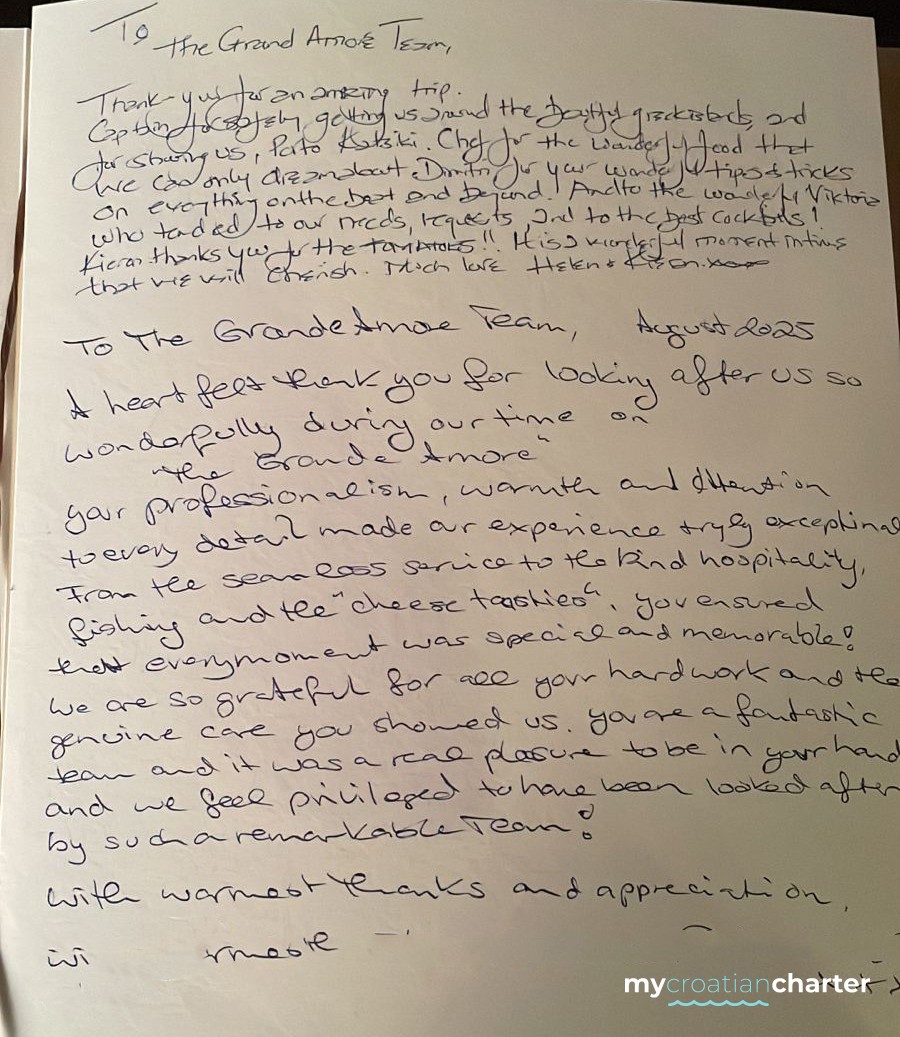 To
the Grand Amore Team,
Thank-you for an amazing trip.
Captain for safely getting us around the beautiful greek islands, and
for sharing us, Porto Katsiki. Chef for the wonderful food that
we can only dream about. Dimitri for your wonderful tips & tricks
on everything on the boat and beyond! And to the wonderful Viktoria
who tended to our needs, requests, and to the best cocktails!
Kieran thanks you for the tomatoes!! It is a wonderful moment in time
that we will cherish. Much love Helen &
To The Grande Amore Team, August 2025
A heart felt thank you for looking after us so
wonderfully during our time on
"The Grande Amore"
your professionalism, warmth and attention
to every detail made our experience tryly exceptional
From the seamless service to the kind hospitality,
fishing and the "cheese toasties", you ensured
that every moment was special and memorable!
We are so grateful for all your hard work and the
genuine care you showed us. you are a fantastic
team and it was a real pleasure to be in your hand
and we feel privileged to have been looked after
by such a remarkable Team!
With warmest thanks and appreciation,
mycroatiancharter